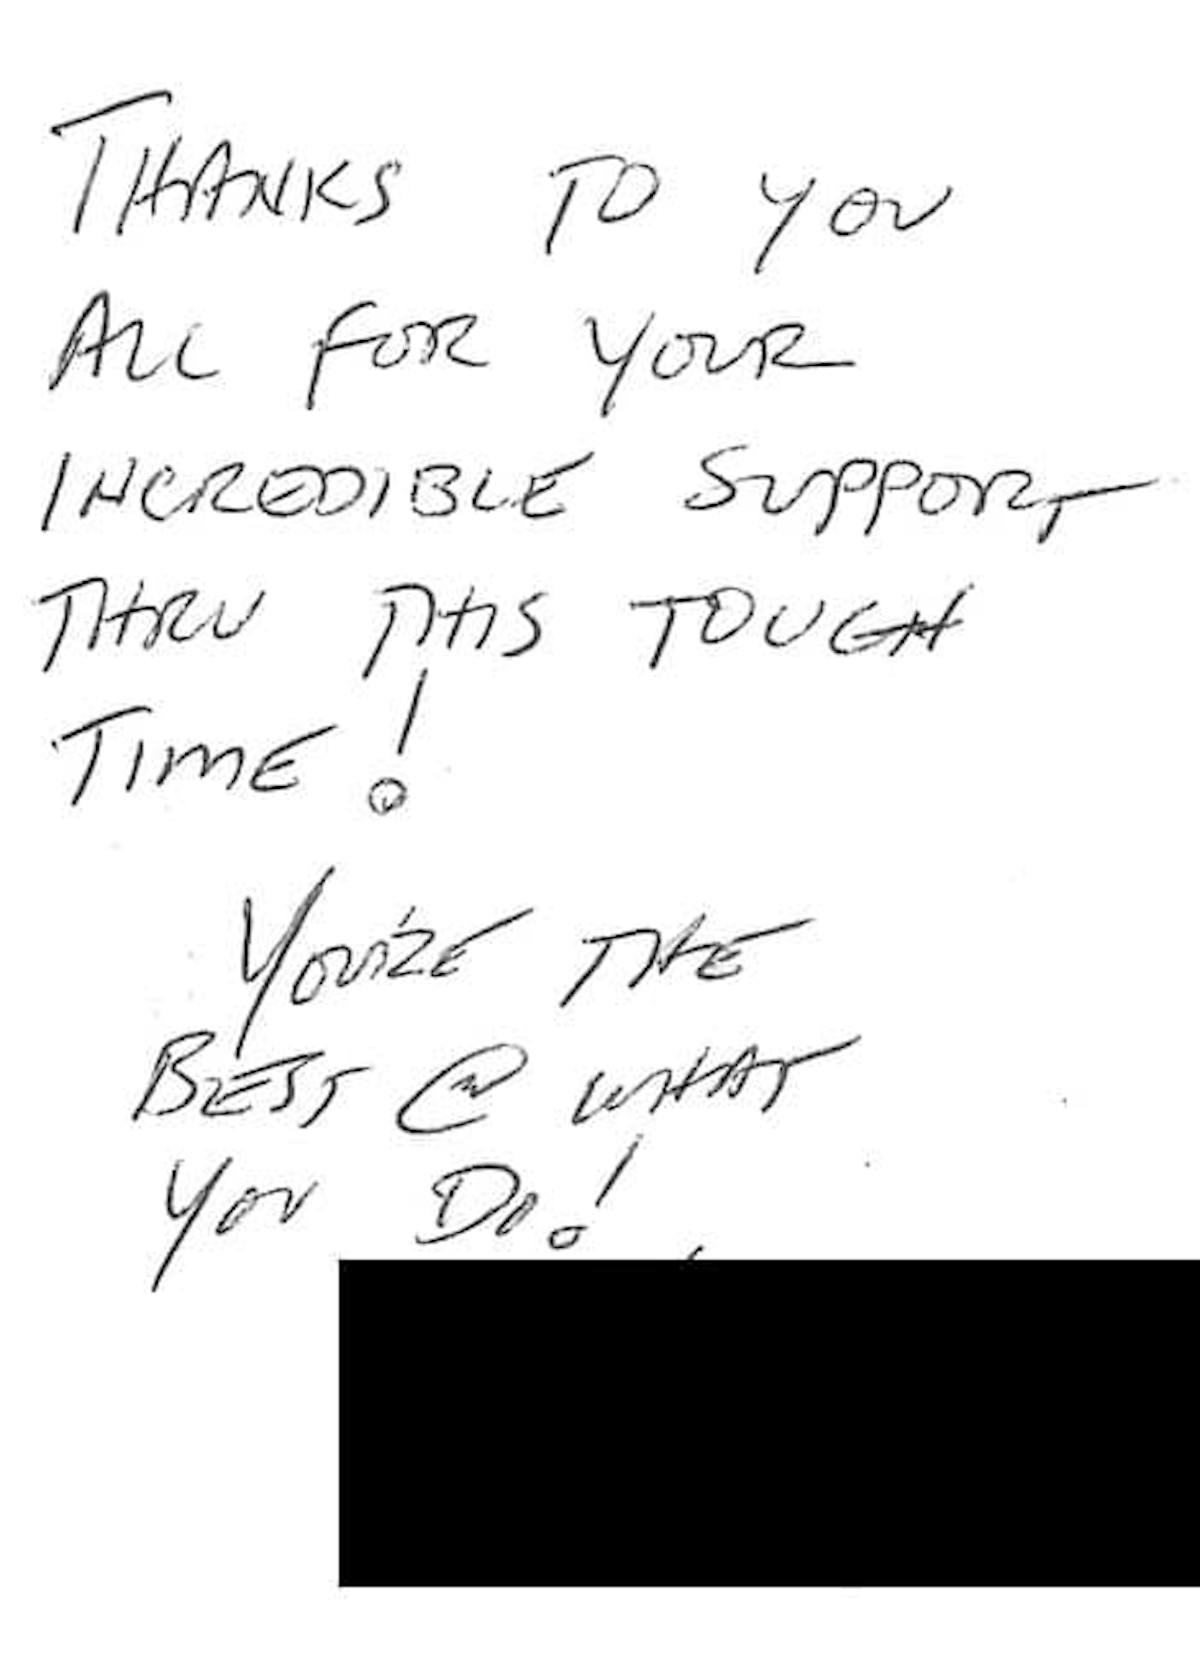 THANKS TO YOU
ALL FOR YOUR
INCREDIBLE SUPPORT
THRU THIS TOUGH
TIME!
YOU'RE THE
BEST @ WHAT
YOU DO!